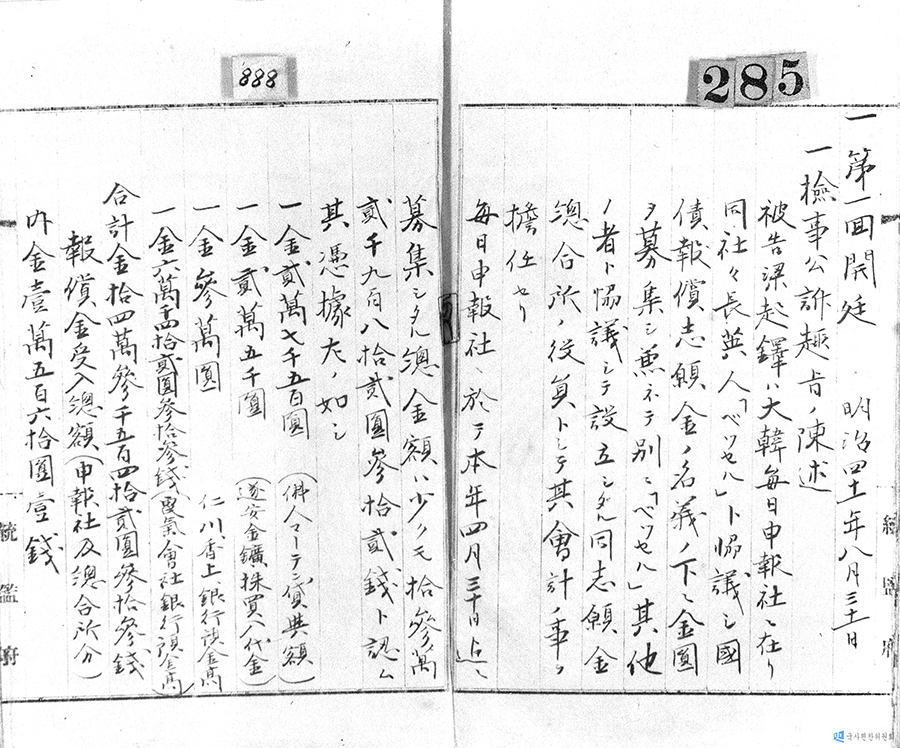 285
一第一回開廷 明治四十一年八月三十一日
一檢事公訴趣旨ノ陳述
被告梁起鐸ハ大韓毎日申報社ニ在リ
同社々長英人「ベツセル」ト協議シ國
債報償志願金ノ名義ノ下ニ金圓
ヲ募集シ兼ネテ別ニ「ベツセル」其他
ノ者ト協議シテ設立シタル同志願金
總合所ノ役員トシテ其會計ノ事ヲ
擔任セリ
毎日申報社ニ於テ本年四月三十日迄ニ
888
募集シタル總金額ハ少クモ拾參萬
貳千九百八拾貳圓參拾貳錢ト認ム
其憑據左ノ如シ
一金貳萬七千五百圓 (佛人マーテン貸與額)
一金貳萬五千圓 (遂安金鑛株買入代金)
一金參萬圓 仁川香上銀行預金高
一金六萬千四拾貳圓參拾參錢(電氣會社銀行預金高)
合計金拾四萬參千五百四拾貳圓參拾參錢
報償金受入總額(申報社及總合所分)
內金壹萬五百六拾圓壹錢
統監府
統監府
국사편찬위원회